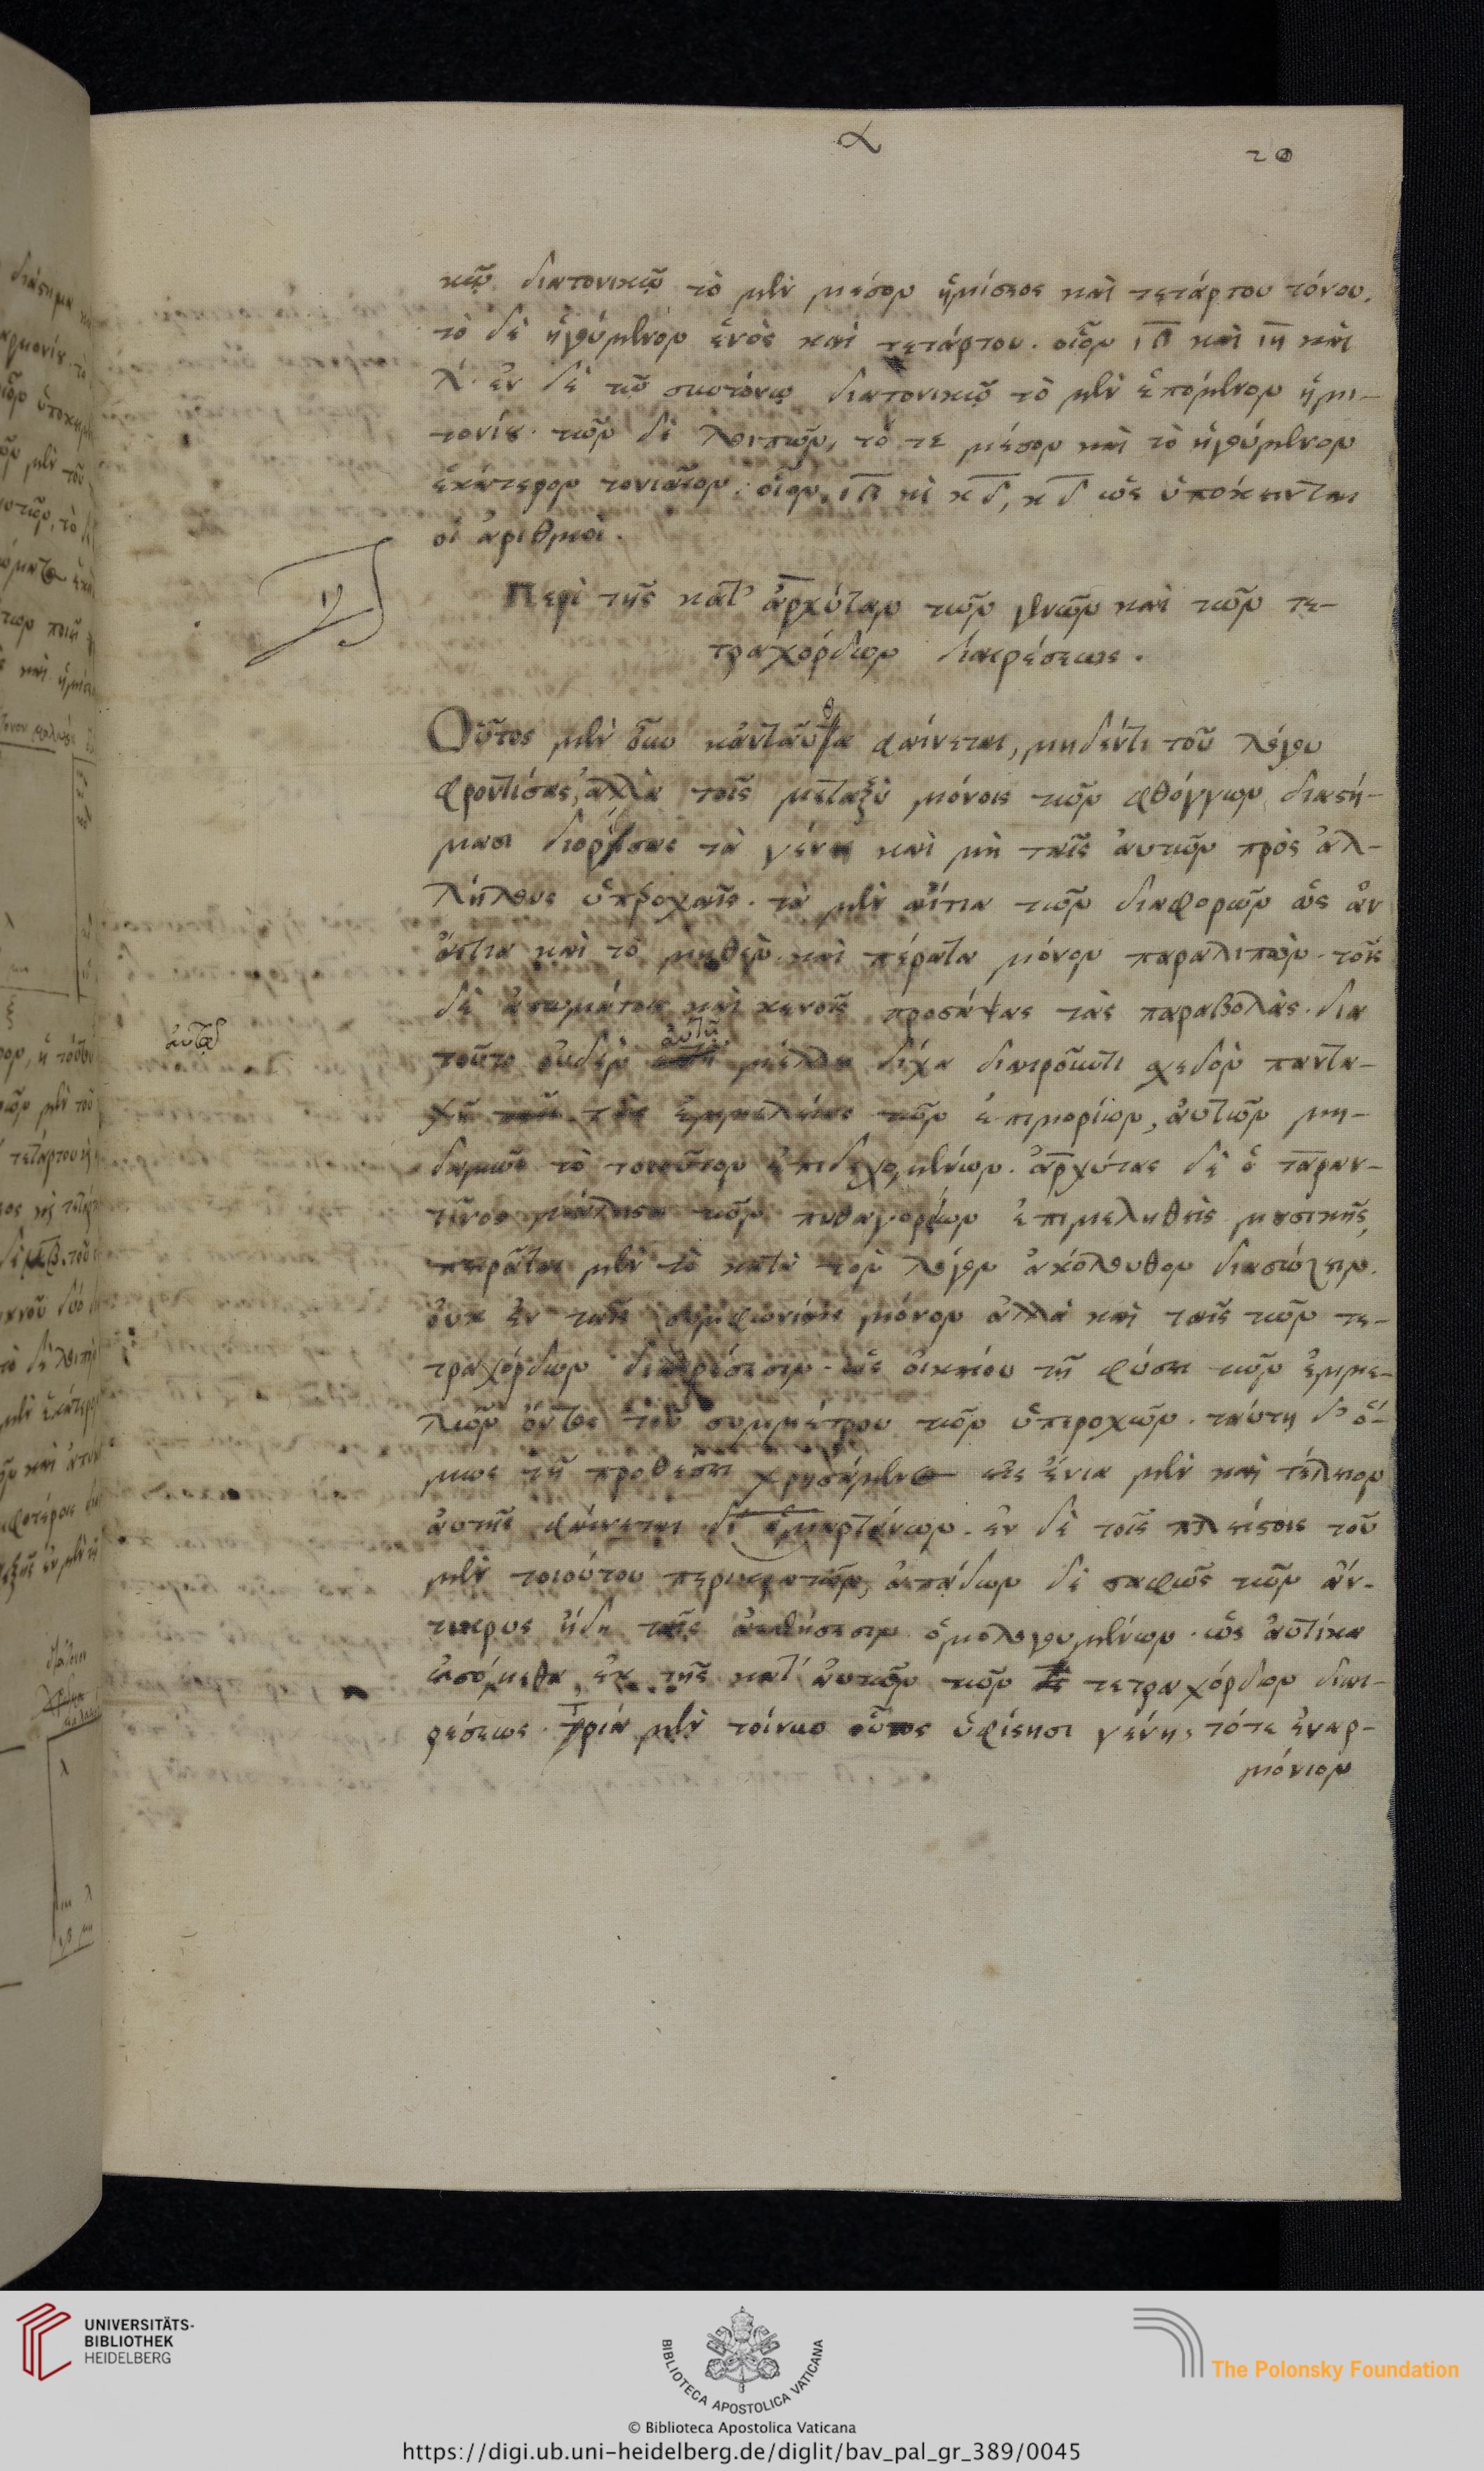 α
20
κῷ διατονικῷ τὸ μὲν μέσον ἡμίσεος καὶ τετάρτου τόνου.
τὸ δὲ ἡγούμενον ἑνὸς καὶ τετάρτου. οἷον ιβ καὶ ιη καὶ
λ. ἐν δὲ τῷ συντόνῳ διατονικῷ τὸ μὲν ἑπόμενον ἡμι-
τονίου. τῶν δὲ λοιπῶν, τό τε μέσον καὶ τὸ ἡγούμενον
ἑκάτερον τονιαῖον. οἷον, ιβ κὶ κδ, κδ ὡς ὑπόκεινται
οἱ ἀριθμοὶ.
ιγ
Περὶ τῆς κατ' ἀρχύταν τῶν γενῶν καὶ τῶν τε-
τραχόρδων διαιρέσεως.
Οὗτος μὲν οὖν κἀνταῦθα φαίνεται, μηδέν τι τοῦ λόγου
φροντίσας, ἀλλὰ τοῖς μεταξὺ μόνοις τῶν φθόγγων διαστή-
μασι διορίσας τὰ γένη καὶ μὴ ταῖς αὐτῶν πρὸς ἀλ-
λήλους ὑπεροχαῖς. τὰ μὲν αἴτια τῶν διαφορῶν ὡς ἀν
αίτια καὶ τὸ μηθὲν καὶ πέρατα μόνον παραλιπὼν. τοῖς
δὲ ἀσωμάτοις καὶ κενοῖς προσάψας τὰς παραβολὰς. δια
αὐτῷ
τοῦτο οὐδὲν αὐτῷ μέλλει δίχα διαιροῦντι σχεδὸν παντα-
χοῦ τὰς ἐμμελείας τῶν ἐπιμορίων, αὐτῶν μη-
δαμῶς τὸ τοιοῦτον ἐπιδεχομένων. ἀρχύτας δὲ ὁ ταραν-
τῖνος μάλιστα τῶν πυθαγορείων ἐπιμεληθεὶς μουσικῆς,
πειρᾶται μὲν τὸ κατὰ τὸν λόγον ἀκόλουθον διασώζειν.
οὐκ ἐν ταῖς συμφωνίαις μόνον ἀλλὰ καὶ ταῖς τῶν τε-
τραχόρδων διαιρέσεσιν. ὡς οἰκείου τῇ φύσει τῶν ἐμμε-
λῶν ὄντος τοῦ συμμέτρου τῶν ὑπεροχῶν. ταύτῃ δ' ὅ-
μως τῇ προθέσει χρησάμενος εἰς ἔνια μὲν καὶ τέλειον
αὐτῆς φαίνεται δι ἁμαρτάνων. ἐν δὲ τοῖς πλείστοις τοῦ
μὲν τοιούτου περικρατῶν, ἀπάδων δὲ σαφῶς τῶν ἄν-
τικρυς ἤδη ταῖς αἰσθήσεσιν ὁμολογουμένων. ὡς αὐτίκα
εἰσόμεθα, ἐκ τῆς κατ' αὐτῶν τῶν τετραχόρδων διαι-
ρέσεως. τρία μὲν τοίνυν οὗτος ὑφίστησι γένη, τότε ἐναρ-
μόνιον
UNIVERSITÄTS-
BIBLIOTHEK
HEIDELBERG
BIBLIOTECA APOSTOLICA VATICANA
The Polonsky Foundation
© Biblioteca Apostolica Vaticana
https://digi.ub.uni-heidelberg.de/diglit/bav_pal_gr_389/0045